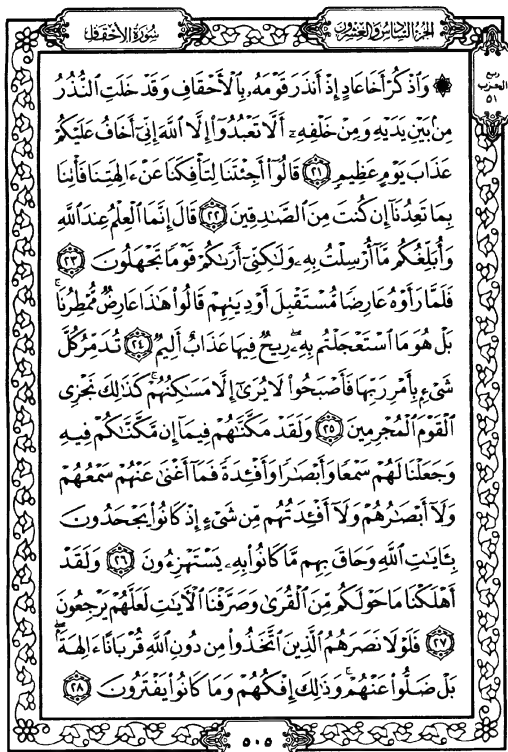 الجُزءُ السَّادِسُ وَالعِشْرُون
سُورَةُ الأَحْقَافِ
ربع
الحزب
٥١
۞ وَٱذْكُرْ أَخَا عَادٍ إِذْ أَنذَرَ قَوْمَهُۥ بِٱلْأَحْقَافِ وَقَدْ خَلَتِ ٱلنُّذُرُ
مِنۢ بَيْنِ يَدَيْهِ وَمِنْ خَلْفِهِۦٓ أَلَّا تَعْبُدُوٓا۟ إِلَّا ٱللَّهَ إِنِّىٓ أَخَافُ عَلَيْكُمْ
عَذَابَ يَوْمٍ عَظِيمٍ ٢١ قَالُوٓا۟ أَجِئْتَنَا لِتَأْفِكَنَا عَنْ ءَالِهَتِنَا فَأْتِنَا
بِمَا تَعِدُنَآ إِن كُنتَ مِنَ ٱلصَّٰدِقِينَ ٢٢ قَالَ إِنَّمَا ٱلْعِلْمُ عِندَ ٱللَّهِ
وَأُبَلِّغُكُم مَّآ أُرْسِلْتُ بِهِۦ وَلَٰكِنِّىٓ أَرَىٰكُمْ قَوْمًا تَجْهَلُونَ ٢٣
فَلَمَّا رَأَوْهُ عَارِضًا مُّسْتَقْبِلَ أَوْدِيَتِهِمْ قَالُوا۟ هَٰذَا عَارِضٌ مُّمْطِرُنَا ۚ
بَلْ هُوَ مَا ٱسْتَعْجَلْتُم بِهِۦ ۖ رِيحٌ فِيهَا عَذَابٌ أَلِيمٌ ٢٤ تُدَمِّرُ كُلَّ
شَىْءٍۭ بِأَمْرِ رَبِّهَا فَأَصْبَحُوا۟ لَا يُرَىٰٓ إِلَّا مَسَٰكِنُهُمْ ۚ كَذَٰلِكَ نَجْزِى
ٱلْقَوْمَ ٱلْمُجْرِمِينَ ٢٥ وَلَقَدْ مَكَّنَّٰهُمْ فِيمَآ إِن مَّكَّنَّٰكُمْ فِيهِ
وَجَعَلْنَا لَهُمْ سَمْعًا وَأَبْصَٰرًا وَأَفْـِٔدَةً فَمَآ أَغْنَىٰ عَنْهُمْ سَمْعُهُمْ
وَلَآ أَبْصَٰرُهُمْ وَلَآ أَفْـِٔدَتُهُم مِّن شَىْءٍ إِذْ كَانُوا۟ يَجْحَدُونَ
بِـَٔايَٰتِ ٱللَّهِ وَحَاقَ بِهِم مَّا كَانُوا۟ بِهِۦ يَسْتَهْزِءُونَ ٢٦ وَلَقَدْ
أَهْلَكْنَا مَا حَوْلَكُم مِّنَ ٱلْقُرَىٰ وَصَرَّفْنَا ٱلْـَٔايَٰتِ لَعَلَّهُمْ يَرْجِعُونَ
٢٧ فَلَوْلَا نَصَرَهُمُ ٱلَّذِينَ ٱتَّخَذُوا۟ مِن دُونِ ٱللَّهِ قُرْبَانًا ءَالِهَةًۢ ۖ
بَلْ ضَلُّوا۟ عَنْهُمْ ۚ وَذَٰلِكَ إِفْكُهُمْ وَمَا كَانُوا۟ يَفْتَرُونَ ٢٨
٥٠٥